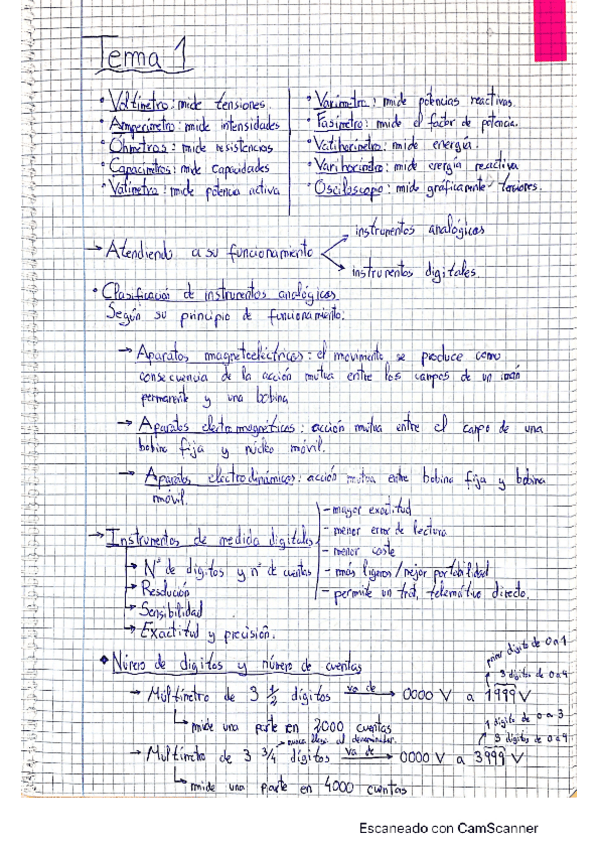 Tema 1
• Voltímetro: mide tensiones.
• Amperímetro: mide intensidades
• Óhmetros: mide resistencias
• Capacímetros: mide capacidades
• Vatímetro: mide potencia activa
• Varímetro: mide potencias reactivas.
• Fasímetro: mide el factor de potencia.
• Vatihorímetro: mide energía.
• Varihorímetro: mide energía reactiva
• Osciloscopo: mide gráficamente tensiones.
→ Atendiendo a su funcionamiento
instrumentos analógicos
instrumentos digitales.
• Clasificación de instrumentos analógicos.
Según su principio de funcionamiento:
→ Aparatos magnetoeléctricos: el movimiento se produce como
consecuencia de la acción mutua entre los campos de un imán
permanente y una bobina
→ Aparatos electromagnéticos: acción mutua entre el campo de una
bobina fija y núcleo móvil.
→ Aparatos electrodinámicos: acción mutua entre bobina fija y bobina
móvil.
→ Instrumentos de medida digitales
- mayor exactitud
- menor error de lectura
- menor coste
- más ligeros/mejor portabilidad
- permite un trat. telemático directo.
→ Nº de dígitos y nº de cuentas
→ Resolución
→ Sensibilidad
→ Exactitud y precisión.
• Número de dígitos y número de cuentas
primer dígito de 0 a 1
3 dígitos de 0 a 9
→ Multímetro de 3 1/2 dígitos va de → 0000 V a 1999 V
mide una parte en 2000 cuentas
1 dígito de 0 a 3
3 dígitos de 0 a 9
→ nunca llega al denominador.
→ Multímetro de 3 3/4 dígitos va de → 0000 V a 3999 V
mide una parte en 4000 cuentas
Escaneado con CamScanner